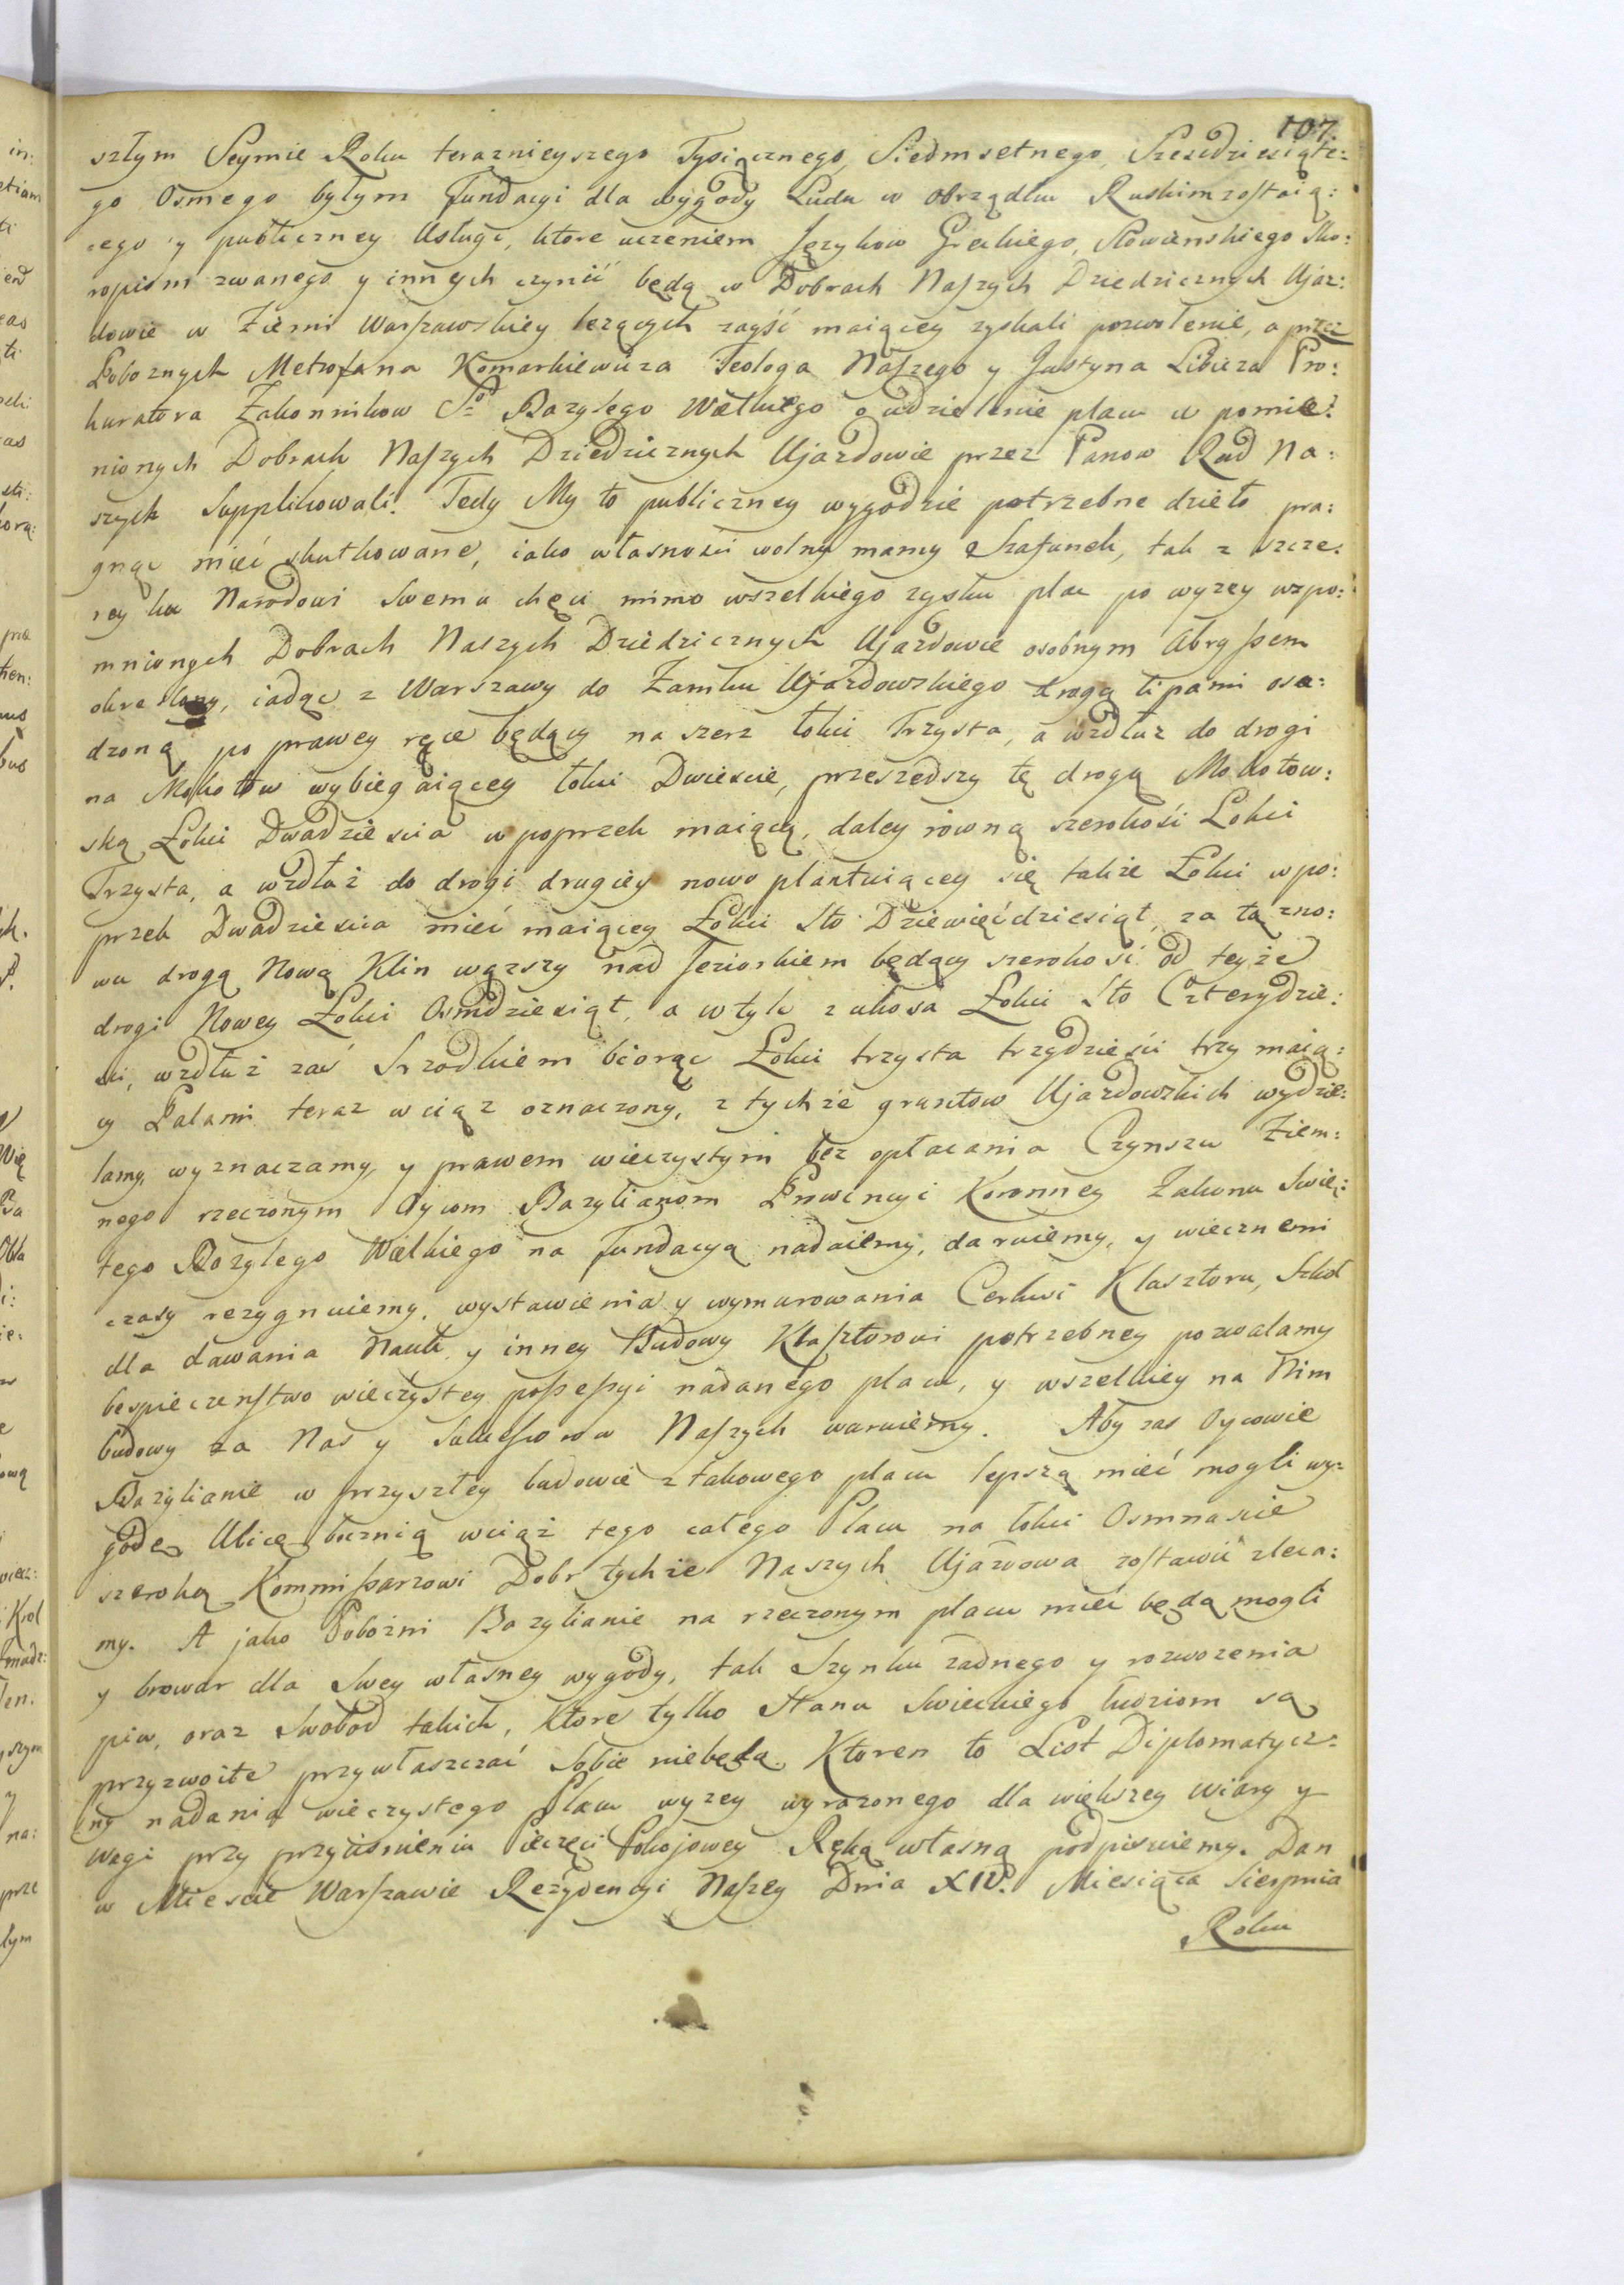 107.
szłym Seymie Roku teraznieyszego Tysiącznego Siedmsetnego, Szescdziesiąte:
go Osmego byłym Fundacyi dla wygody Ludu w Obrządku Ruskim zostaią:
cego y publiczney Usługi, ktore uczeniem Językow Greckiego, Słowienskiego Sko:
ropism zwanego y innych czynić będą w Dobrach Naszych Dziedzicznych Ujaz:
dowie w Ziemi Warszawskiey leżących zayść maiącey zyskali pozwolenie, a przez
Pobożnych Metrofana Komarkiewicza Teologa Naszego y Justyna Libicza Pro:
kuratora Zakonnikow So Bazylego Wielkiego o udzielenie placu w pomie:
nionych Dobrach Naszych Dziedzicznych Ujazdowie przez Panow Rad Na:
szych Supplikowali. Tedy My to publiczney wygodzie potrzebne dzieło pra:
gnąc mieć skutkowane, iako własności wolny mamy Szafunek, tak z szcze:
rey ku Narodowi Swemu chęci mimo wszelkiego zysku plac po wyzey wzpo:
mnionych Dobrach Naszych Dziedzicznych Ujazdowie osobnym Abryssem
okreslony, iadąc z Warszawy do Zamku Ujazdowskiego drogą lipami osa:
dzoną po prawey ręce będący na szerz łokci Trzysta, a wzdłuż do drogi
na Mokotow wybiegaiącey łokci Dwiescie, przeszedszy tę drogą Mokotow:
ską Łokci Dwadziescia w poprzek maiącą, daley rowną szerokości Łokci
Trzysta, a wzdłuż do drogi drugiey nowo plantuiącey się także Łokci wpo:
przek Dwadziescia mieć maiącey Łokci Sto Dziewięćdziesiąt, za tą zno:
wu drogą Nową Klin wązszy nad Jeziorkiem będący szerokosci od teyże
drogi Nowey Łokci Osmdziesiąt, a w tyle z ukosa Łokci Sto Czterydzie:
sci, wzdłuż zaś Srzodkiem biorąc Łokci trzysta trzydzieści trzy maią:
cy Palami teraz wciąz oznaczony, z tychże gruntow Ujazdowskich wydzie:
lamy, wyznaczamy, y prawem wieczystym bez opłacania Czynszu Ziem:
nego rzeczonym Oycom Bazylianom Prowincyi Koronney Zakonu Swię:
tego Bazylego Wielkiego na Fundacyą nadaiemy, daruiemy, y wiecznemi
czasy rezygnuiemy, wystawienia y wymurowania Cerkwi Klasztoru, Szkoł
dla dawania Nauk y inney Budowy Klasztorowi potrzebney pozwalamy
bespieczenstwo wieczystey possessyi nadanego placu, y wszelkiey na Nim
budowy za Nas y Sukcessorow Naszych waruiemy. Aby zas Oycowie
Bazylianie w przyszłey budowie z takowego placu lepszą mieć mogli wy:
godę, Ulicę boczną wciąż tego całego Placu na łokci Osmnascie
szeroką Kommissarzowi Dobr tychże Naszych Ujazdowa zostawić zleca:
my. A jako Pobożni Bazylianie na rzeczonym placu mieć będą mogli
y browar dla Swey własney wygody, tak Szynku zadnego y rozwozenia
piw, oraz Swobod takich, Ktore tylko Stanu Swieckiego ludziom są
przyzwoite przywłaszczać Sobie niebędą. Ktoren to List Diplomatycz:
ny nadania wieczystego Placu wyzey wyrazonego dla większey wiary y
wagi przy przycisnieniu Pieczęci Pokojowey Ręką własną podpisuiemy. Dan
w Miescie Warszawie Rezydencyi Naszey Dnia XIV. Miesiąca Sierpnia
Roku